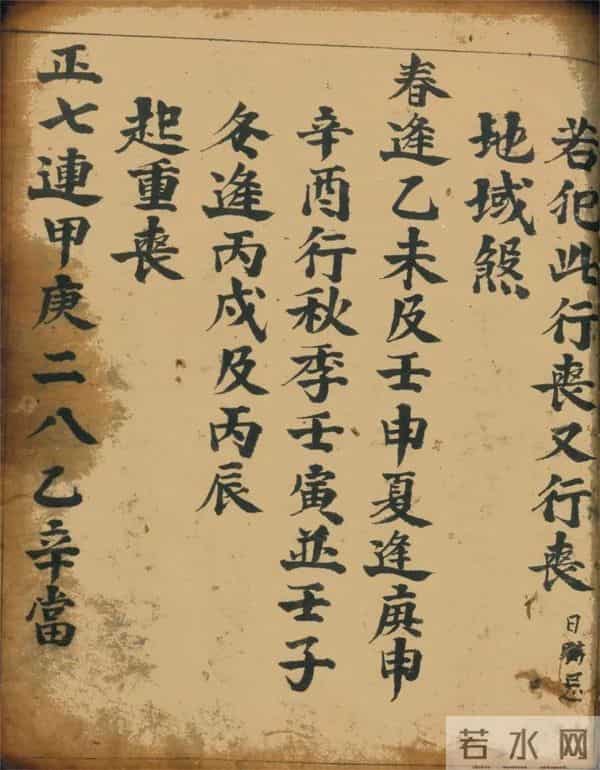 若犯此行喪又行喪
地域煞
春逢乙未及壬申夏逢庚申
辛酉行秋季壬寅並壬子
冬逢丙戍及丙辰
起重喪
正七連甲庚二八乙辛當
若水网